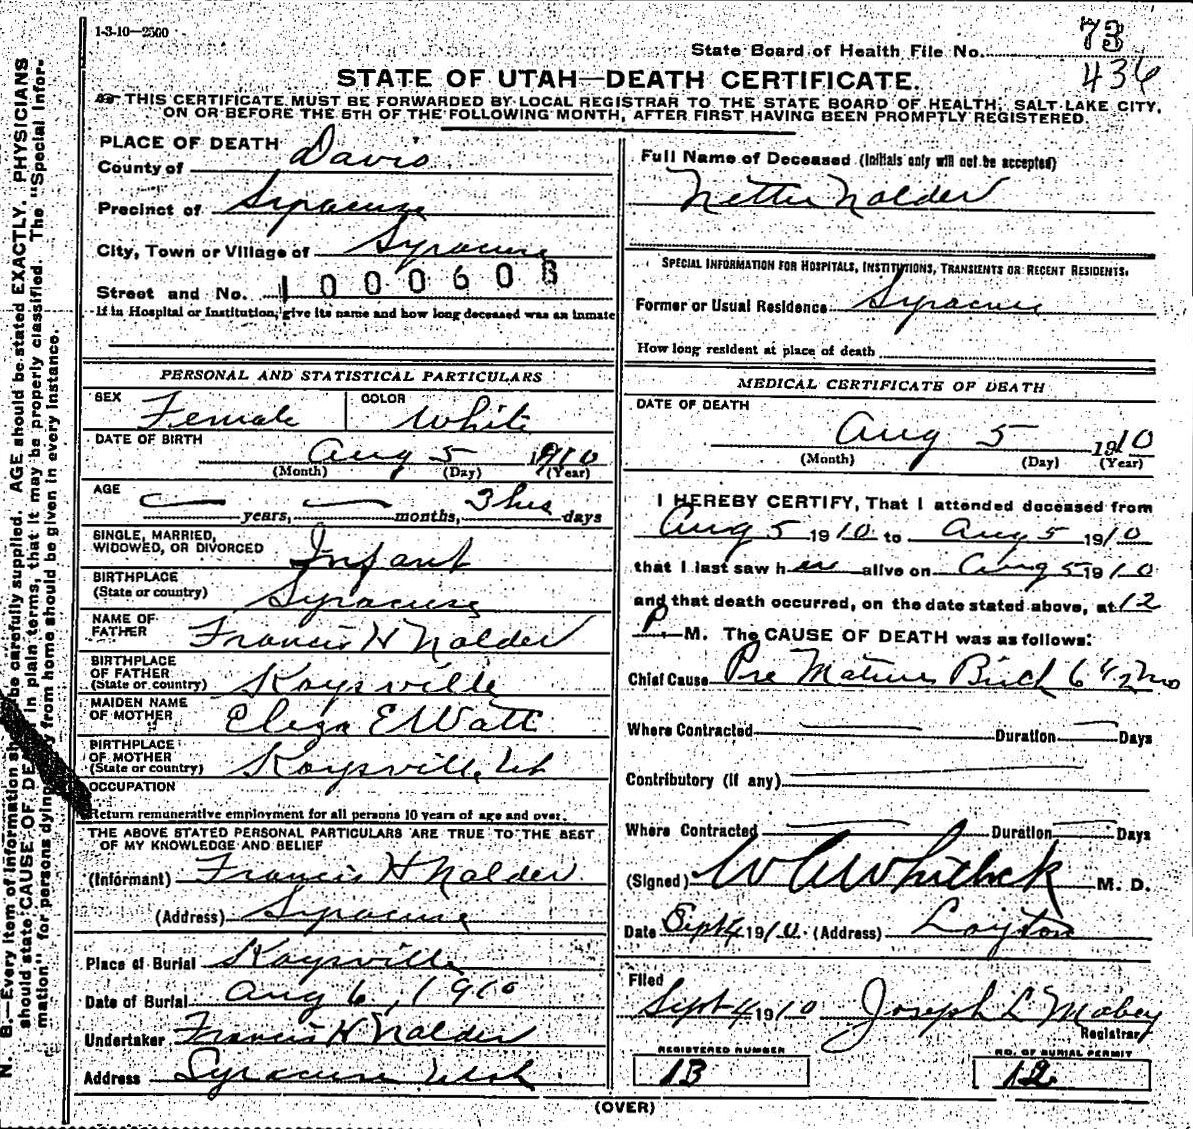 1-3-10—2500
State Board of Health File No. 73
436
STATE OF UTAH—DEATH CERTIFICATE.
THIS CERTIFICATE MUST BE FORWARDED BY LOCAL REGISTRAR TO THE STATE BOARD OF HEALTH, SALT LAKE CITY,
ON OR BEFORE THE 5TH OF THE FOLLOWING MONTH, AFTER FIRST HAVING BEEN PROMPTLY REGISTERED.
PLACE OF DEATH
County of Davis
Precinct of Syracuse
City, Town or Village of Syracuse
Street and No. 1000608
If in Hospital or Institution, give its name and how long deceased was an inmate
PERSONAL AND STATISTICAL PARTICULARS
SEX Female COLOR White
DATE OF BIRTH
Aug 5 1910
(Month) (Day) (Year)
AGE
years, months, 3 hrs days
SINGLE, MARRIED,
WIDOWED, OR DIVORCED Infant
BIRTHPLACE
(State or country) Syracuse
NAME OF
FATHER Francis H Nalder
BIRTHPLACE
OF FATHER
(State or country) Kaysville
MAIDEN NAME
OF MOTHER Eliza E Watt
BIRTHPLACE
OF MOTHER
(State or country) Kaysville Ut
OCCUPATION
Return remunerative employment for all persons 10 years of age and over.
THE ABOVE STATED PERSONAL PARTICULARS ARE TRUE TO THE BEST
OF MY KNOWLEDGE AND BELIEF
(Informant) Francis H Nalder
(Address) Syracuse
Place of Burial Kaysville
Date of Burial Aug 6, 1910
Undertaker Francis H Nalder
Address Syracuse Utah
Full Name of Deceased (Initials only will not be accepted)
Nettie Nalder
SPECIAL INFORMATION FOR HOSPITALS, INSTITUTIONS, TRANSIENTS OR RECENT RESIDENTS.
Former or Usual Residence Syracuse
How long resident at place of death
MEDICAL CERTIFICATE OF DEATH
DATE OF DEATH
Aug 5 1910
(Month) (Day) (Year)
I HEREBY CERTIFY, That I attended deceased from
Aug 5 1910 to Aug 5 1910
that I last saw her alive on Aug 5 1910
and that death occurred, on the date stated above, at 12
P M. The CAUSE OF DEATH was as follows:
Chief Cause Pre Mature Birth 6 1/2 mo
Where Contracted Duration Days
Contributory (if any)
Where Contracted Duration Days
(Signed) W A Whitlock M. D.
Date Sept 4 1910. (Address) Layton
Filed
Sept 4 1910 Joseph L Mabey
Registrar
REGISTERED NUMBER
13
NO. OF BURIAL PERMIT
12
(OVER)
N. B.—Every item of information should be carefully supplied. AGE should be stated EXACTLY. PHYSICIANS
should state CAUSE OF DEATH in plain terms, that it may be properly classified. The "Special Infor-
mation" for persons dying away from home should be given in every instance.